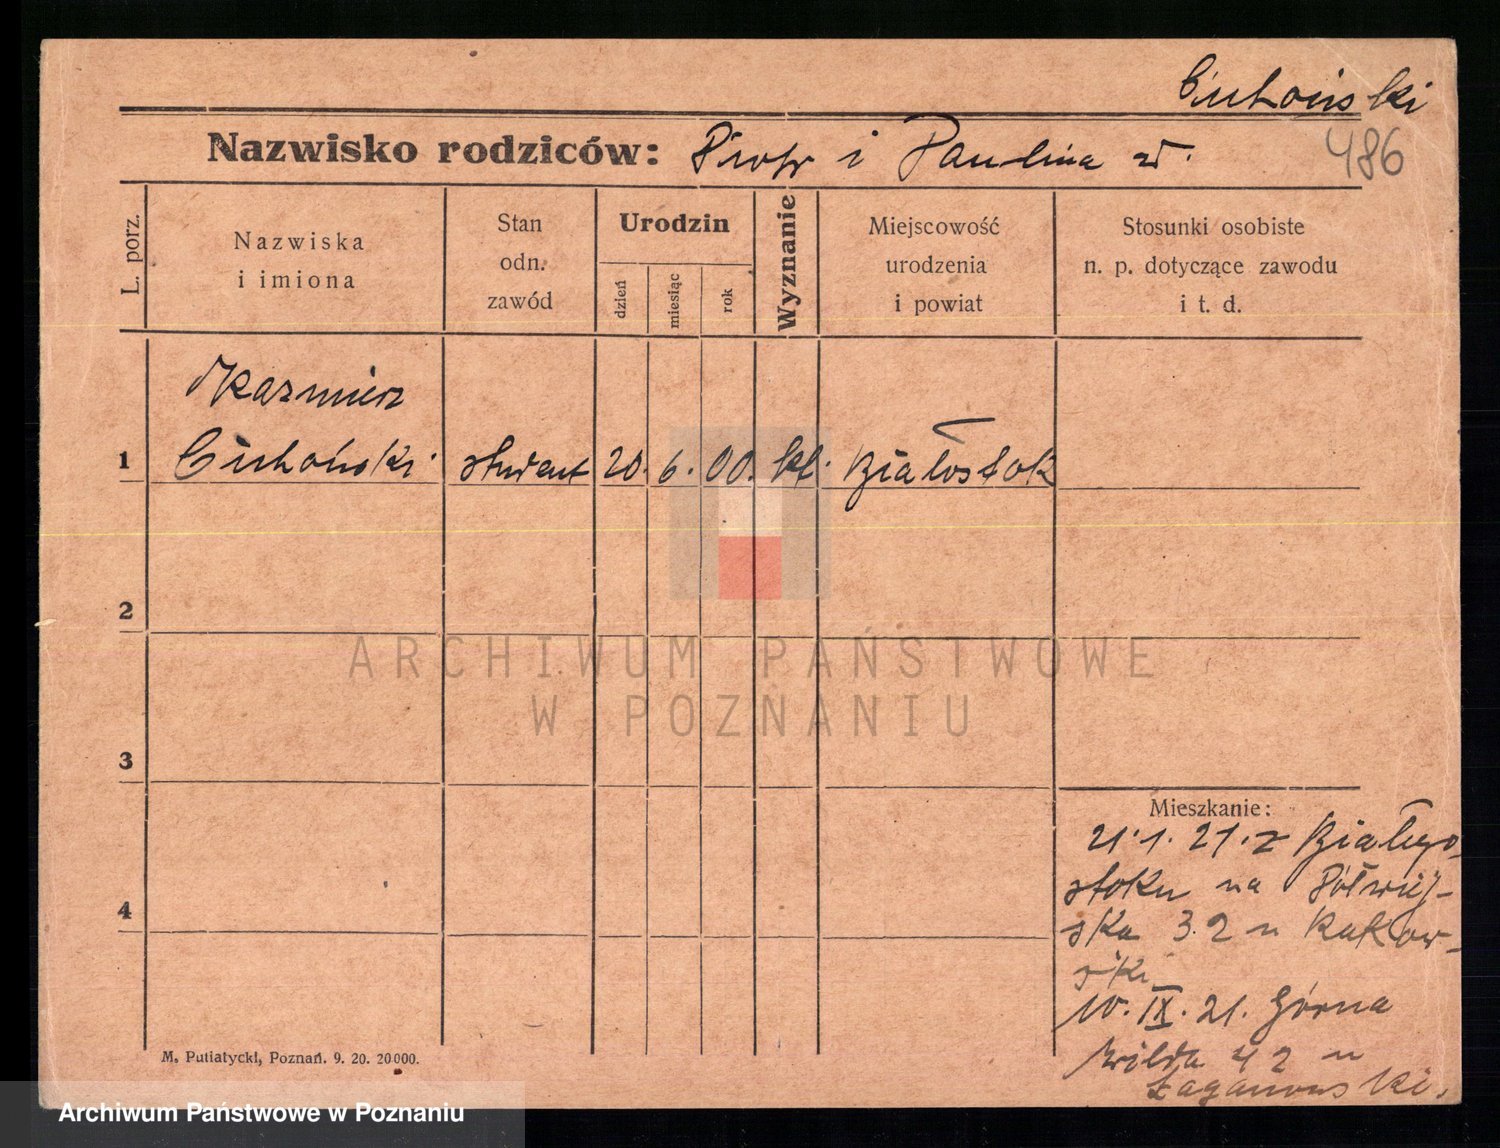 486
Nazwisko rodziców: Piotr i Paulina
L. porz.
Nazwiska
i imiona
Stan
odn.
zawód
Urodzin
dzień
miesiąc
rok
Wyznanie
Miejscowość
urodzenia
i powiat
Stosunki osobiste
n. p. dotyczące zawodu
i t. d.
Kazmierz
1 student 20. 6. 00. kt. Białostok
2
ARCHIWUM PAŃSTWOWE
W POZNANIU
3
Mieszkanie:
21.1.21. z Białego
stoku na Półwiej-
4
ska 32 u Rakow-
ski
10. IX. 21. Górna
Wilda 42 u
M. Putiatycki, Poznań. 9. 20. 20000.
Archiwum Państwowe w Poznaniu